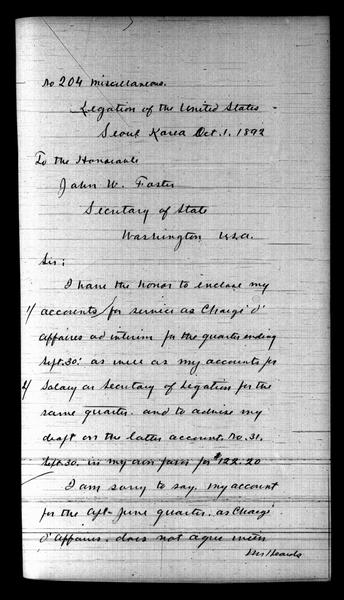 No 204 Miscellaneous.
Legation of the United States
Seoul Korea Oct. 1. 1892
To the Honorable
John W. Foster
Secretary of State
Washington U.S.A.
Sir:
I have the honor to enclose my
1/ accounts for service as Chargé d'
affaires ad interim for the quarter ending
Sept. 30: as well as my accounts for
2/ Salary as Secretary of Legation for the
same quarter. and to advise my
draft on the latter account. No. 31.
Sept. 30. in my own favor for $122.20
I am sorry to say, my account
for the Apl- June quarter. as Chargé
d'Affaires. does not agree with